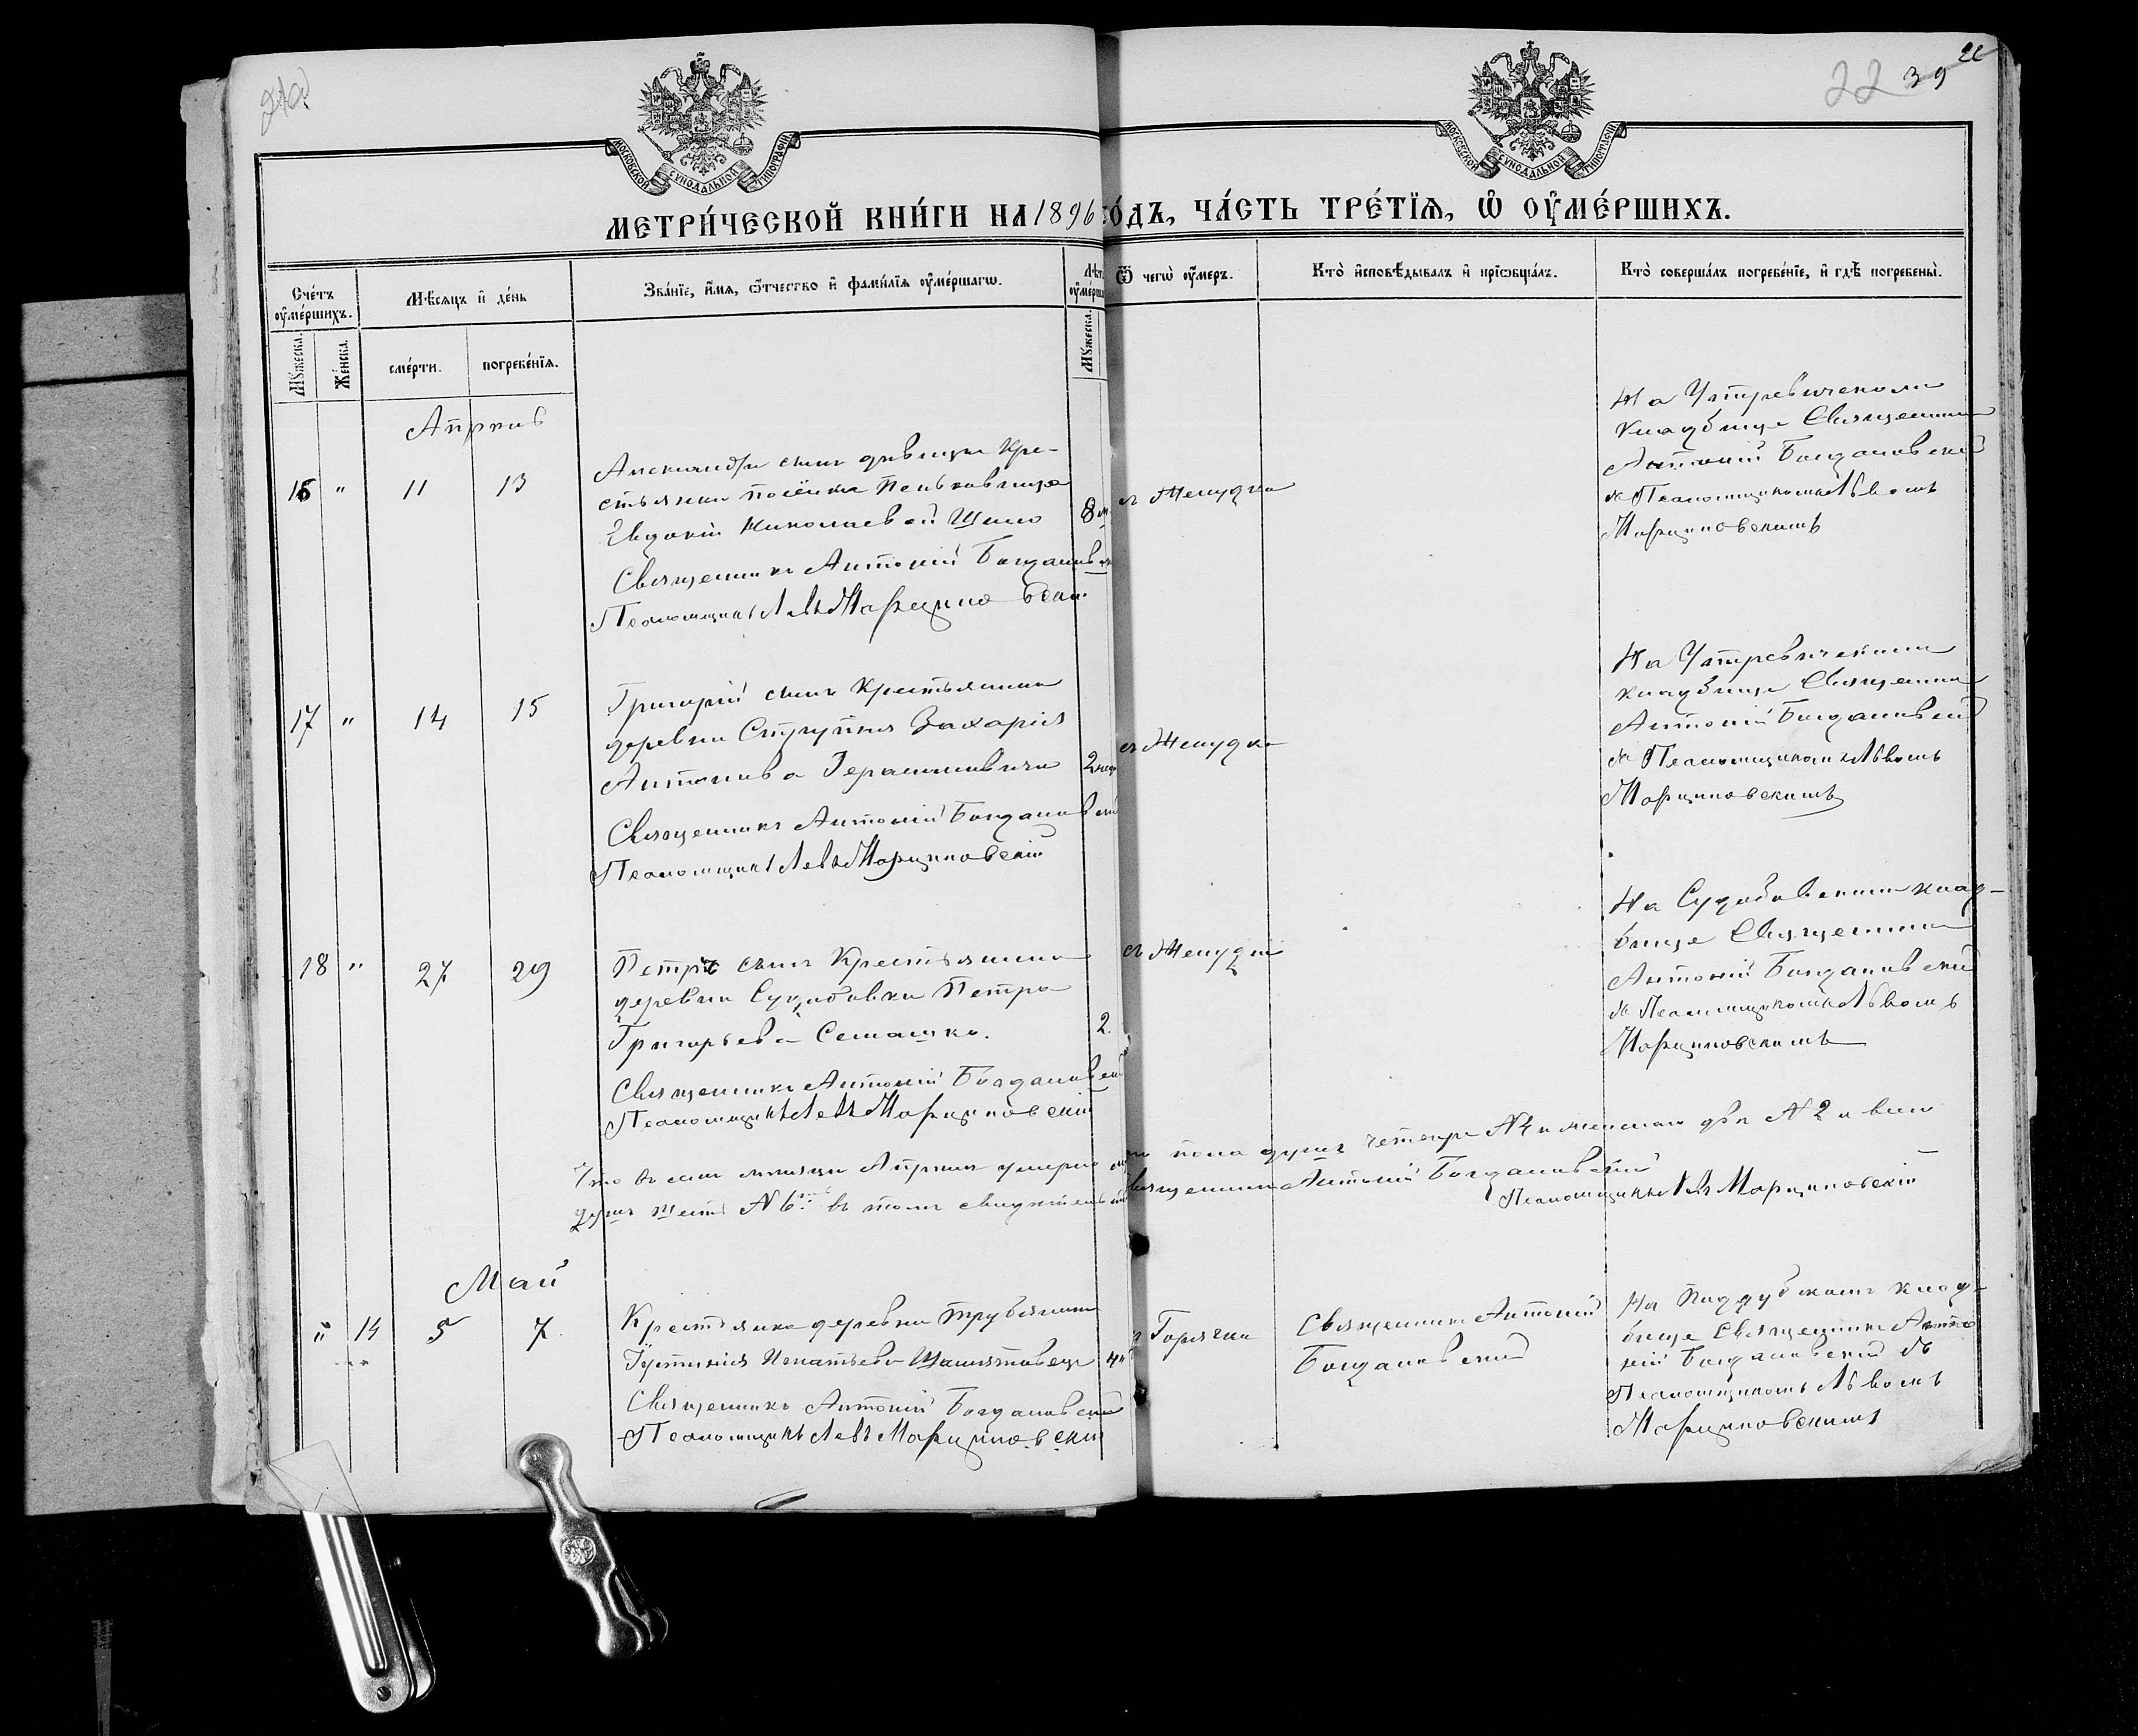 22 39
МОСКОВСКОЙ СѴНОДАЛЬНОЙ ТИПОГРАФІИ
МОСКОВСКОЙ СѴНОДАЛЬНОЙ ТИПОГРАФІИ
МЕТРИ́ЧЕСКОЙ КНИ́ГИ НА 1896 ГО́ДЪ, ЧА́СТЬ ТРЕ́ТЇѦ, Ѡ҆ ОУ҆МЕ́РШИХЪ.
Сче́тъ оу҆ме́ршихъ.
Мꙋжеска.
Же́нска.
Мѣ́сяцъ и҆ де́нь
сме́рти.
погребе́нїѧ.
Зва́нїе, и҆́мѧ, ѻ҆́тчество и҆ фами́лїѧ оу҆ме́ршагѡ.
Мꙋжеска.
Ѿ чегѡ̀ оу҆́мер.
Кто̀ и҆сповѣ́дывалъ и҆ прїѡбща́лъ.
Кто̀ соверша́лъ погребе́нїе, и҆ гдѣ̀ погребены̀.
Апрѣль
16 " 11 13
Александръ сынъ дѣвицы Кре-
стьянки
Евдокіи Николаевой
8 м
Желудка
Священникъ Антоній Богдановскій
Псаломщикъ Левъ Марциновскій
На
кладбище Священникъ
Антоній Богдановскій
съ Псаломщикомъ Львомъ
Марциновскимъ
17 " 14 15
Григорій сынъ Крестьянина
деревни Захарія
Антонова Герасимовича
2
Желудка
Священникъ Антоній Богдановскій
Псаломщикъ Левъ Марциновскій
На
кладбище Священникъ
Антоній Богдановскій
съ Псаломщикомъ Львомъ
Марциновскимъ
18 " 27 29
Петръ сынъ Крестьянина
деревни Петра
Григорьева Семашко.
2.
Желудка
Священникъ Антоній Богдановскій
Псаломщикъ Левъ Марциновскій
На клад-
бище Священникъ
Антоній Богдановскій
съ Псаломщикомъ Львомъ
Марциновскимъ
Что въ семъ мѣсяцѣ Апрѣлѣ умерло пола душъ четыре № 4 и женскаго двѣ № 2 и всего
душъ шесть № 6 въ томъ Священникъ Антоній Богдановскій
Псаломщикъ Левъ Марциновскій
Май
" 14 5 7.
Крестьянка деревни
Іустинія Игнатьева
Горячки
Священникъ Антоній
Богдановскій
Священникъ Антоній Богдановскій
Псаломщикъ Левъ Марциновскій
На клад-
бище Священникъ Анто
ній Богдановскій съ
Псаломщикомъ Львомъ
Марциновскимъ